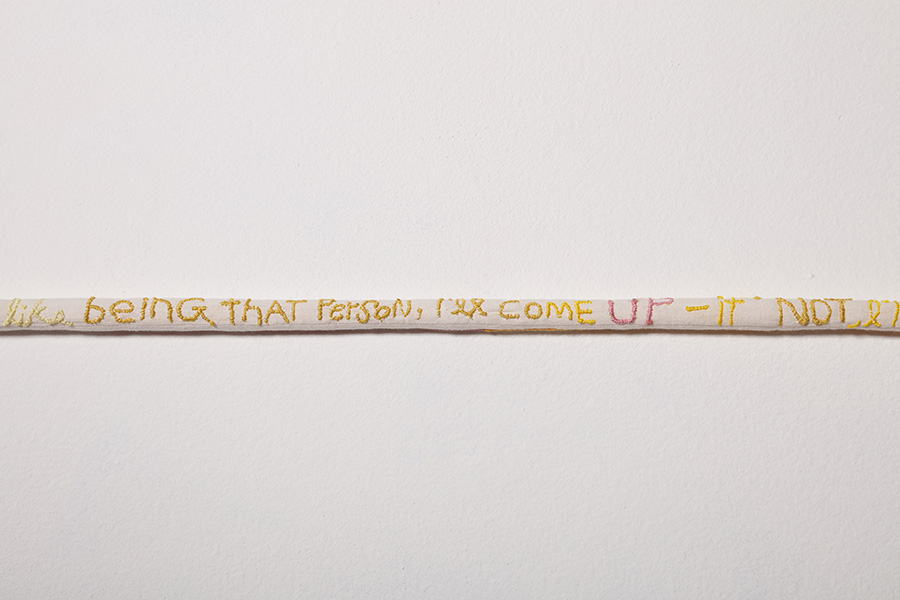 like being THAT Person, I'll COME UP - IT NOT